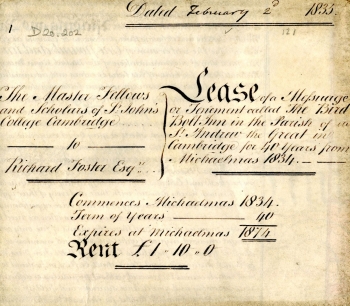 Dated February 2d 1835.
1
D20.202
121
The Master Fellows
and Scholars of St Johns
College Cambridge
to
Richard Foster Esqre
Lease of a Messuage
or Tenement called The Bird
Bolt Inn in the Parish of
St Andrew the Great in
Cambridge for 40 Years from
Michaelmas 1834.
Commences Michaelmas 1834.
Term of Years 40
Expires at Michaelmas 1874
Rent £1 " 10 " 0